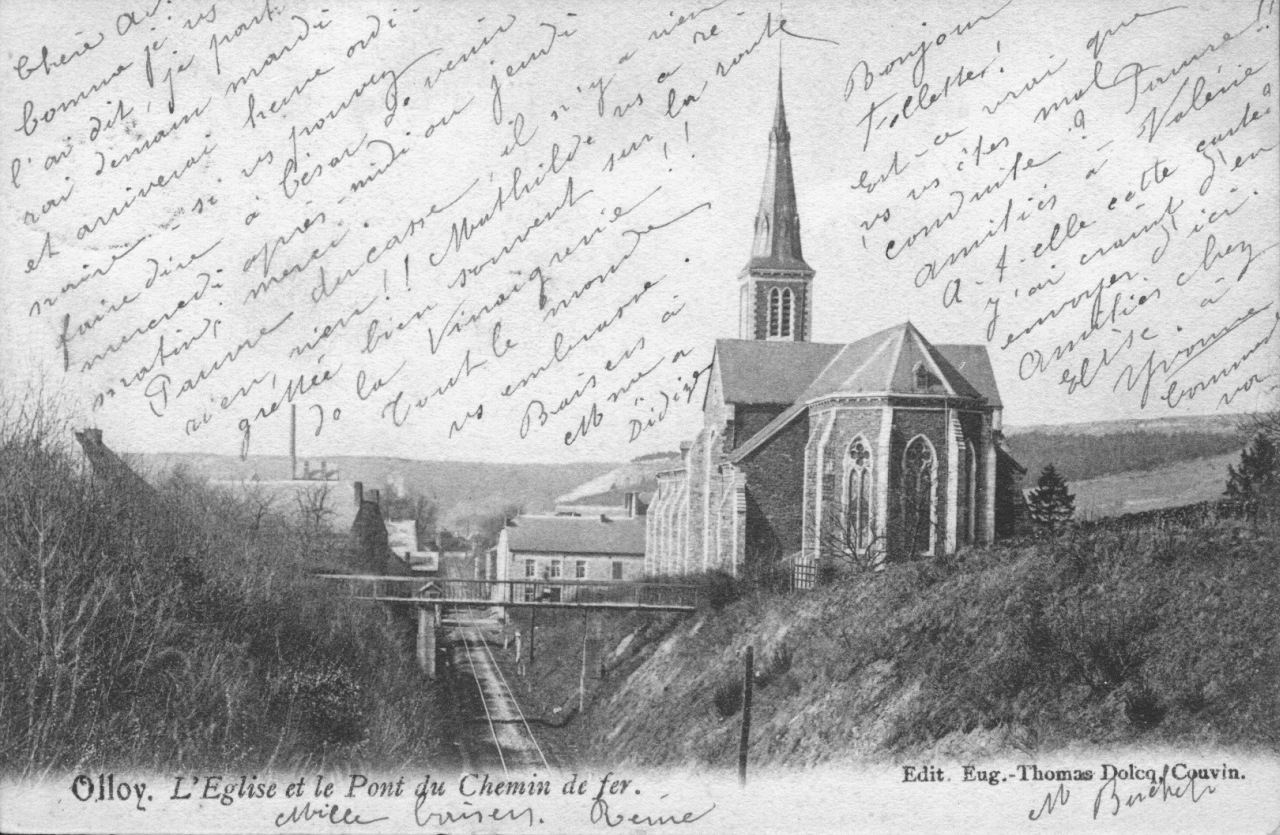 Chère
Comme je vs
l'ai dit, je parti-
rai demain mardi
et arriverai heure ordi-
naire - si vs pouvez
faire dire à César de venir
mercredi après-midi ou jeudi
matin, merci.
Pauvre ducasse, il n'y a rien
rien, rien!! Mathilde vs a re-
grettée bien souvent sur la route
de la Vinaigrerie!!
Tout le monde
vs embrasse.
Baisers à
Mme à
Didize
Bonjour
Follette!
Est-ce vrai que
vs vs êtes mal
conduite? Pauvre!!
Amitiés à Valérie
A-t-elle cette carte?
j'ai craint d'en
envoyer d'ici.
Amitiés chez
Elise. à
Yvonne
Olloy. L'Eglise et le Pont du Chemin de fer.
Edit. Eug.-Thomas Dolcq, Couvin.
Mille baisers. Reine